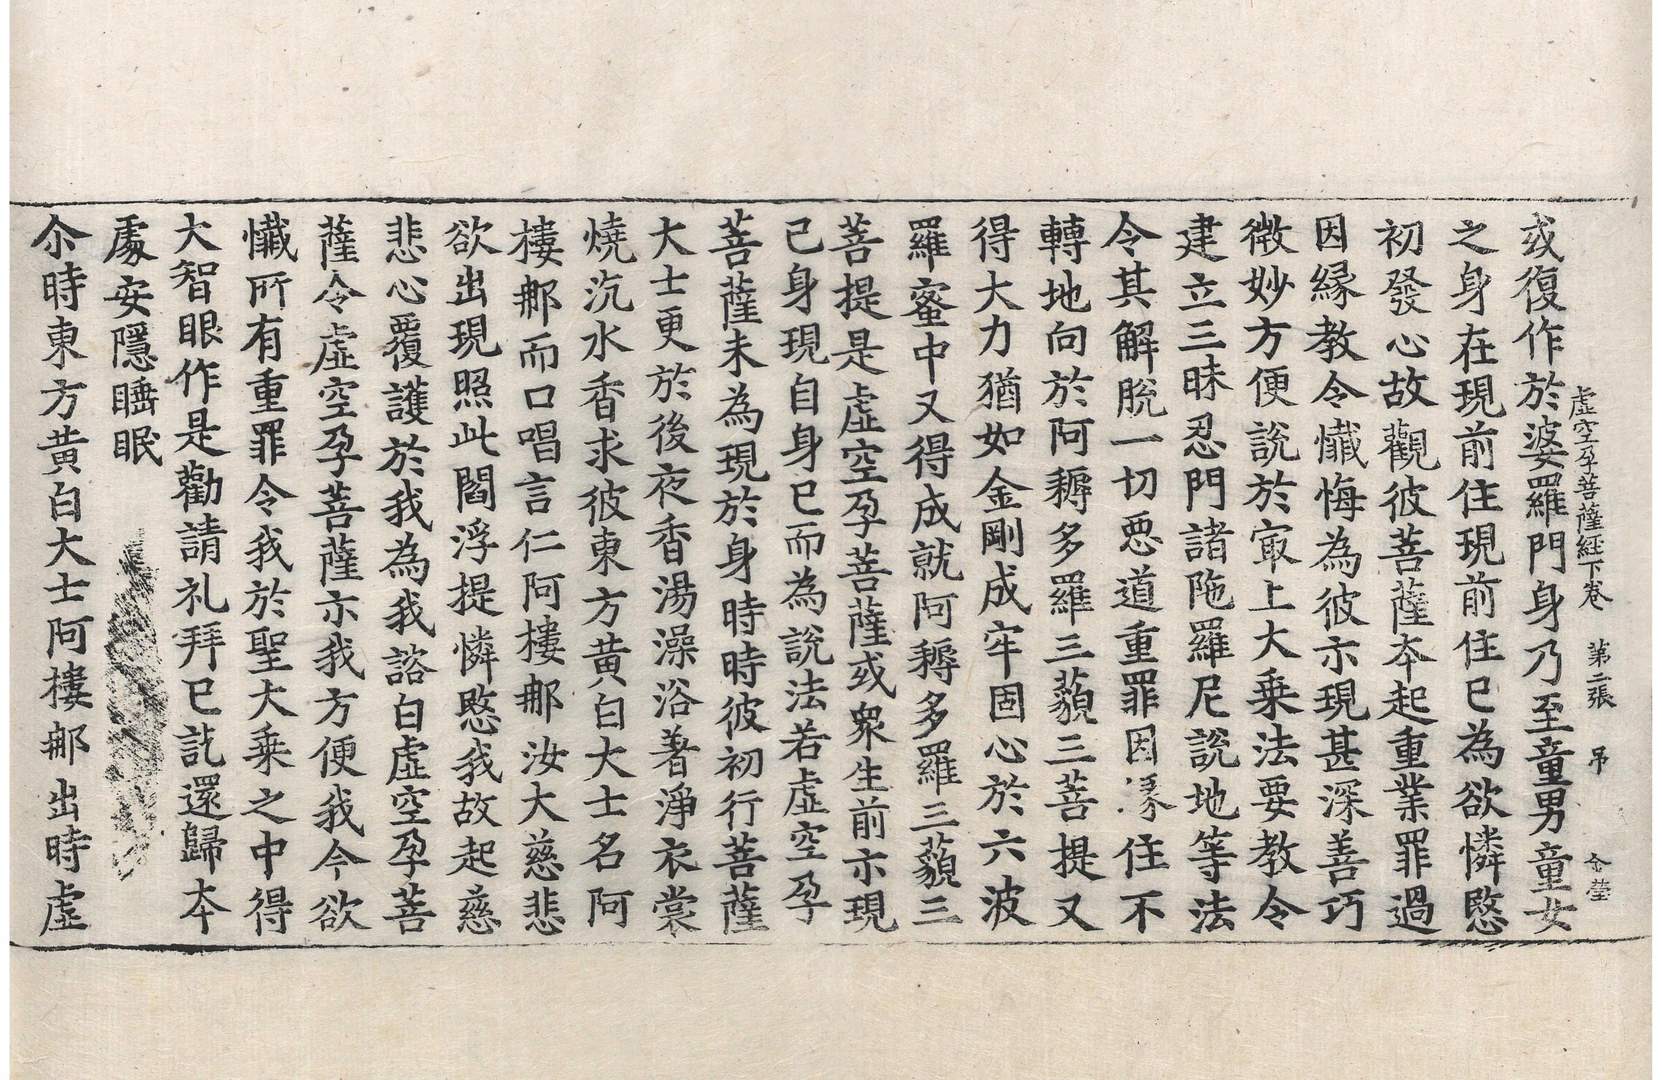 虛空孕菩薩經下卷 第二張 弔 令瑩
或復作於婆羅門身乃至童男童女
之身在現前住現前住已為欲憐愍
初發心故觀彼菩薩夲起重業罪過
因緣教令懺悔為彼示現甚深善巧
微妙方便說於㝡上大乗法要教令
建立三昧忍門諸陁羅尼說地等法
令其解脫一切惡道重罪因緣住不
轉地向於阿耨多羅三藐三菩提又
得大力猶如金剛成牢固心於六波
羅蜜中又得成就阿耨多羅三藐三
菩提是虛空孕菩薩或衆生前示現
己身現自身已而為說法若虛空孕
菩薩未為現於身時時彼初行菩薩
大士更於後夜香湯澡浴著淨衣裳
燒沉水香求彼東方黃白大士名阿
樓𨙻而口唱言仁阿樓𨙻汝大慈悲
欲出現照此閻浮提憐愍我故起慈
悲心覆護於我為我諮白虛空孕菩
薩令虛空孕菩薩示我方便我今欲
懺所有重罪令我於聖大乗之中得
大智眼作是勸請礼拜已訖還歸夲
處安隱睡眠
尒時東方黃白大士阿樓𨙻出時虛